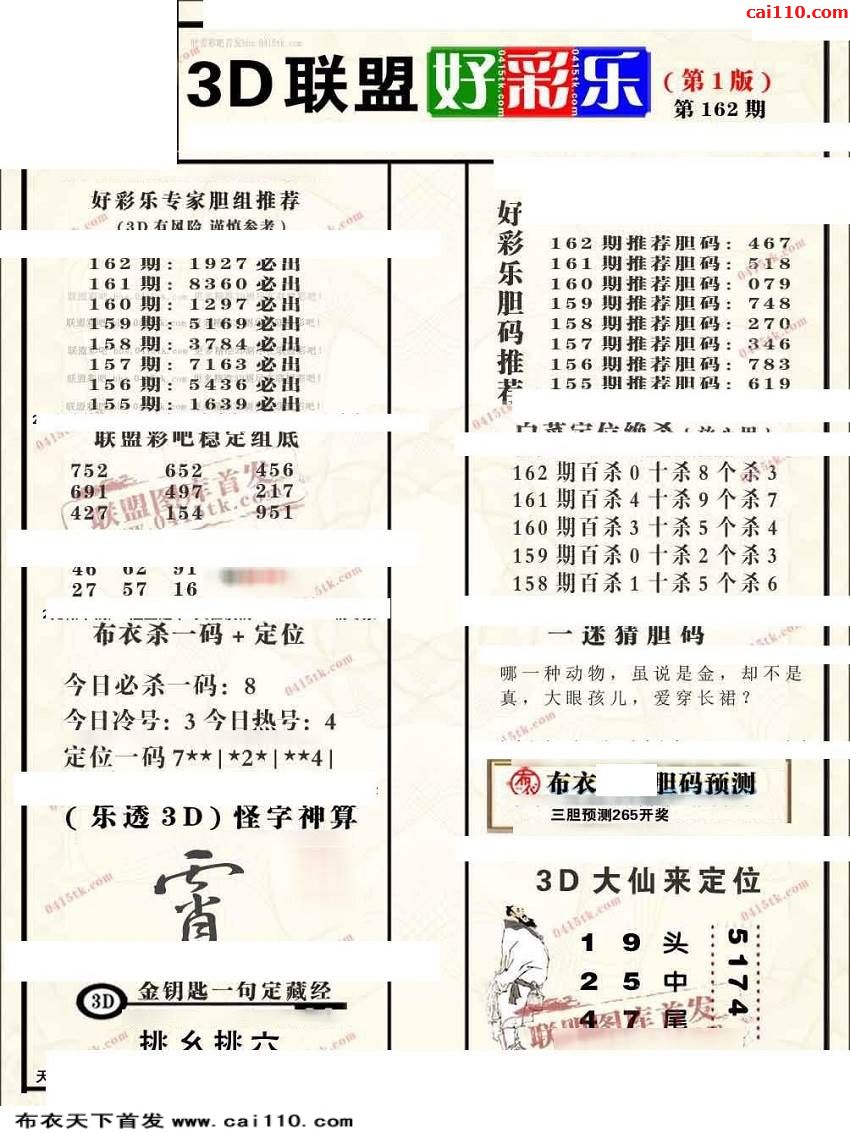 cai110.com
3D联盟好彩乐(第1版)
第162期
好彩乐专家胆组推荐
(3D有风险 谨慎参考)
162期: 1927必出
161期: 8360必出
160期: 1297必出
159期: 5169必出
158期: 3784必出
157期: 7163必出
156期: 5436必出
155期: 1639必出
联盟彩吧稳定组底
752 652 456
691 497 217
427 154 951
46 62 91
27 57 16
布衣杀一码+定位
今日必杀一码: 8
今日冷号: 3 今日热号: 4
定位一码7**|*2*|**4|
(乐透3D)怪字神算
霄
3D 金钥匙一句定藏经
挑幺挑六
天
好彩乐胆码推荐
162期推荐胆码: 467
161期推荐胆码: 518
160期推荐胆码: 079
159期推荐胆码: 748
158期推荐胆码: 270
157期推荐胆码: 346
156期推荐胆码: 783
155期推荐胆码: 619
162期百杀0十杀8个杀3
161期百杀4十杀9个杀7
160期百杀3十杀5个杀4
159期百杀0十杀2个杀3
158期百杀1十杀5个杀6
一迷猜胆码
哪一种动物，虽说是金，却不是
真，大眼孩儿，爱穿长裙？
布衣 胆码预测
三胆预测265开奖
3D大仙来定位
1 9 头
2 5 中
4 7 尾
5174
联盟图库首发
0415tk.com
布衣天下首发 www.cai110.com